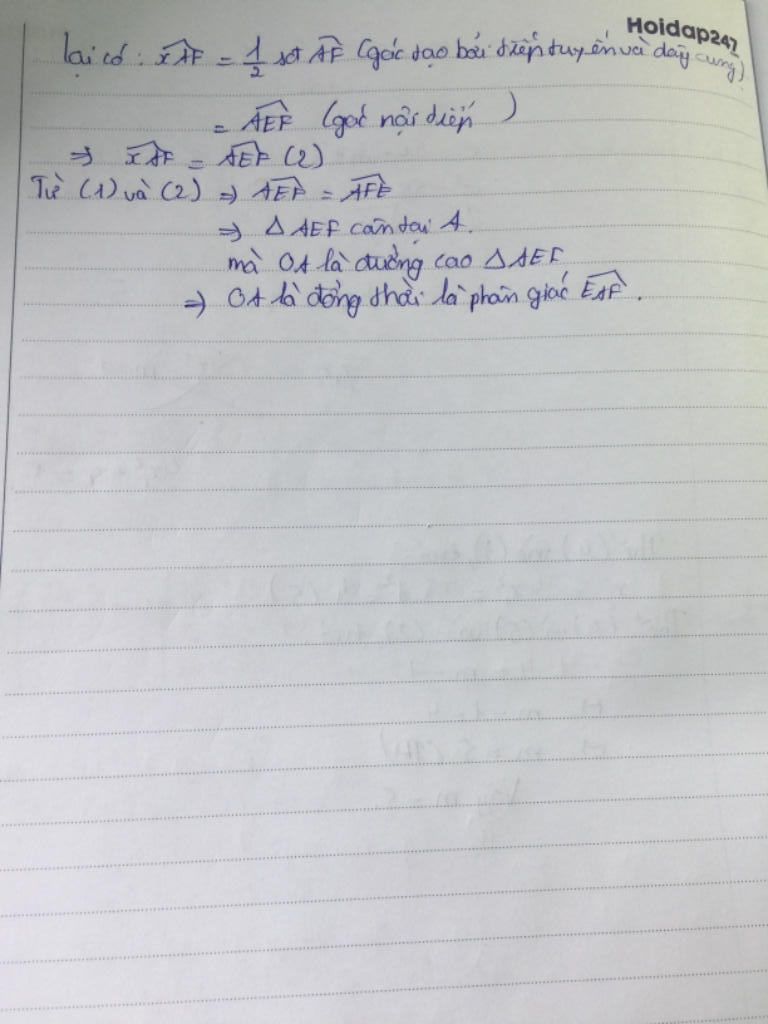 Hoidap247
lại có: xAF = 1/2 sđ AF (góc tạo bởi tiếp tuyến và dây cung)
= AEF (góc nội tiếp)
⇒ xAF = AEF (2)
Từ (1) và (2) ⇒ AEF = AFE
⇒ Δ AEF cân tại A.
mà OA là đường cao Δ AEF
⇒ OA là đồng thời là phân giác EAF.